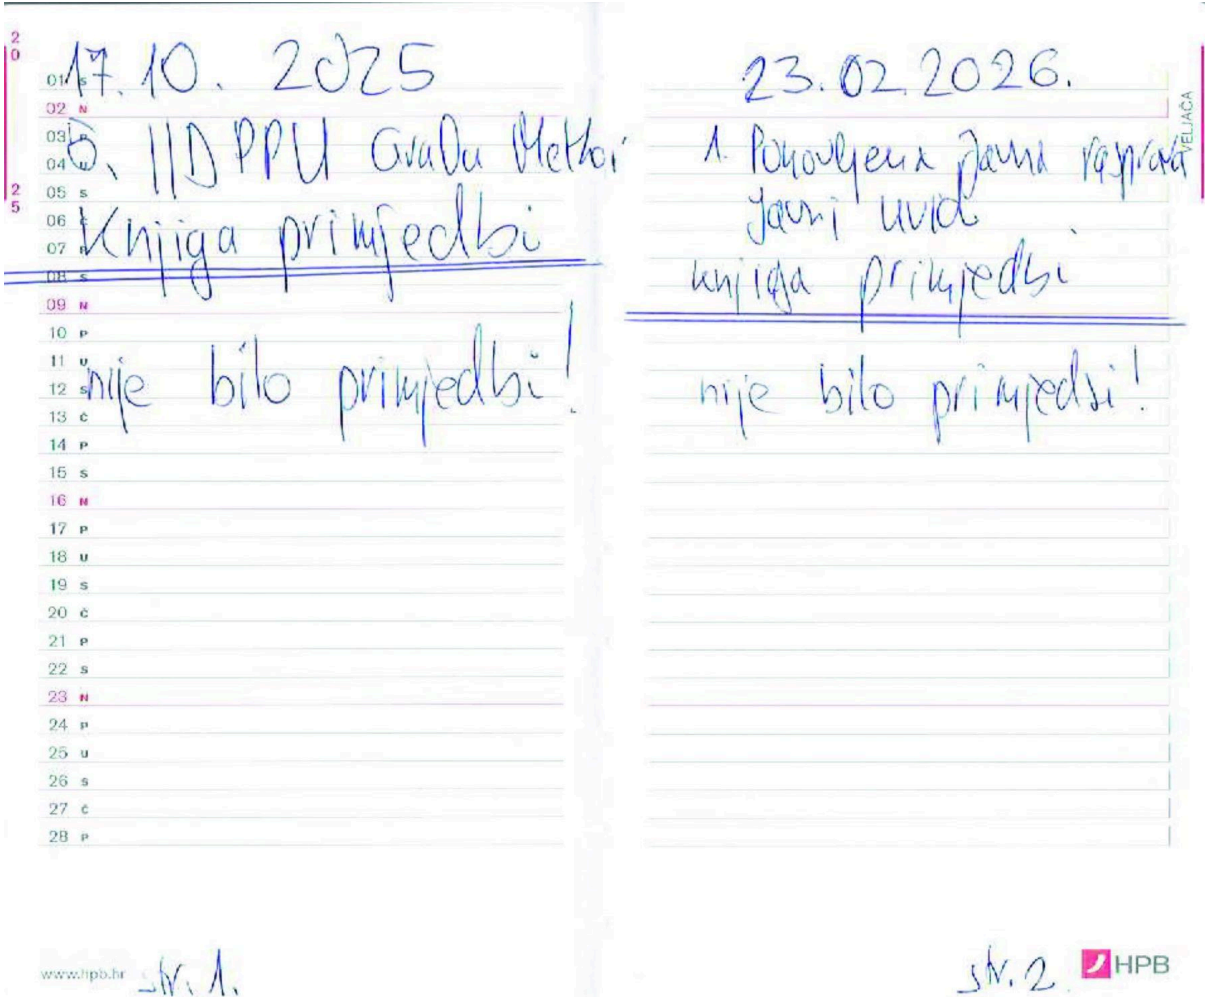 20
25
17.10. 2025
6. IID PPU Grada
Knjiga primjedbi
nije bilo primjedbi!
01 S
02 N
03 P
04 U
05 S
06 Č
07 P
08 S
09 N
10 P
11 U
12 S
13 Č
14 P
15 S
16 N
17 P
18 U
19 S
20 Č
21 P
22 S
23 N
24 P
25 U
26 S
27 Č
28 P
www.hpb.hr
str. 1.
23.02.2026.
VELJAČA
1. Ponovljena Javna rasprava
Javni uvid
knjiga primjedbi
nije bilo primjedbi!
str. 2
HPB